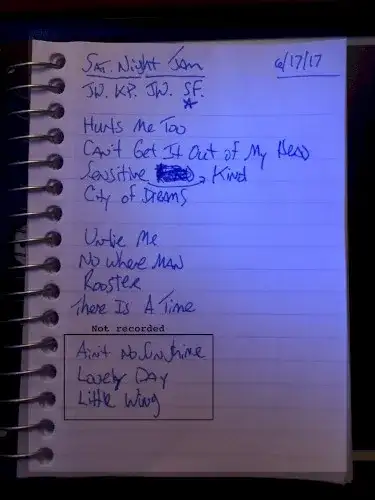 Sat. Night Jam 6/17/17
JW. KP. JW. SF.
Hurts Me Too
Can't Get It Out of My Head
Sensitive Kind
City of Dreams
Untie Me
No Where Man
Rooster
There Is A Time
Not recorded
Ain't No Sunshine
Lovely Day
Little Wing